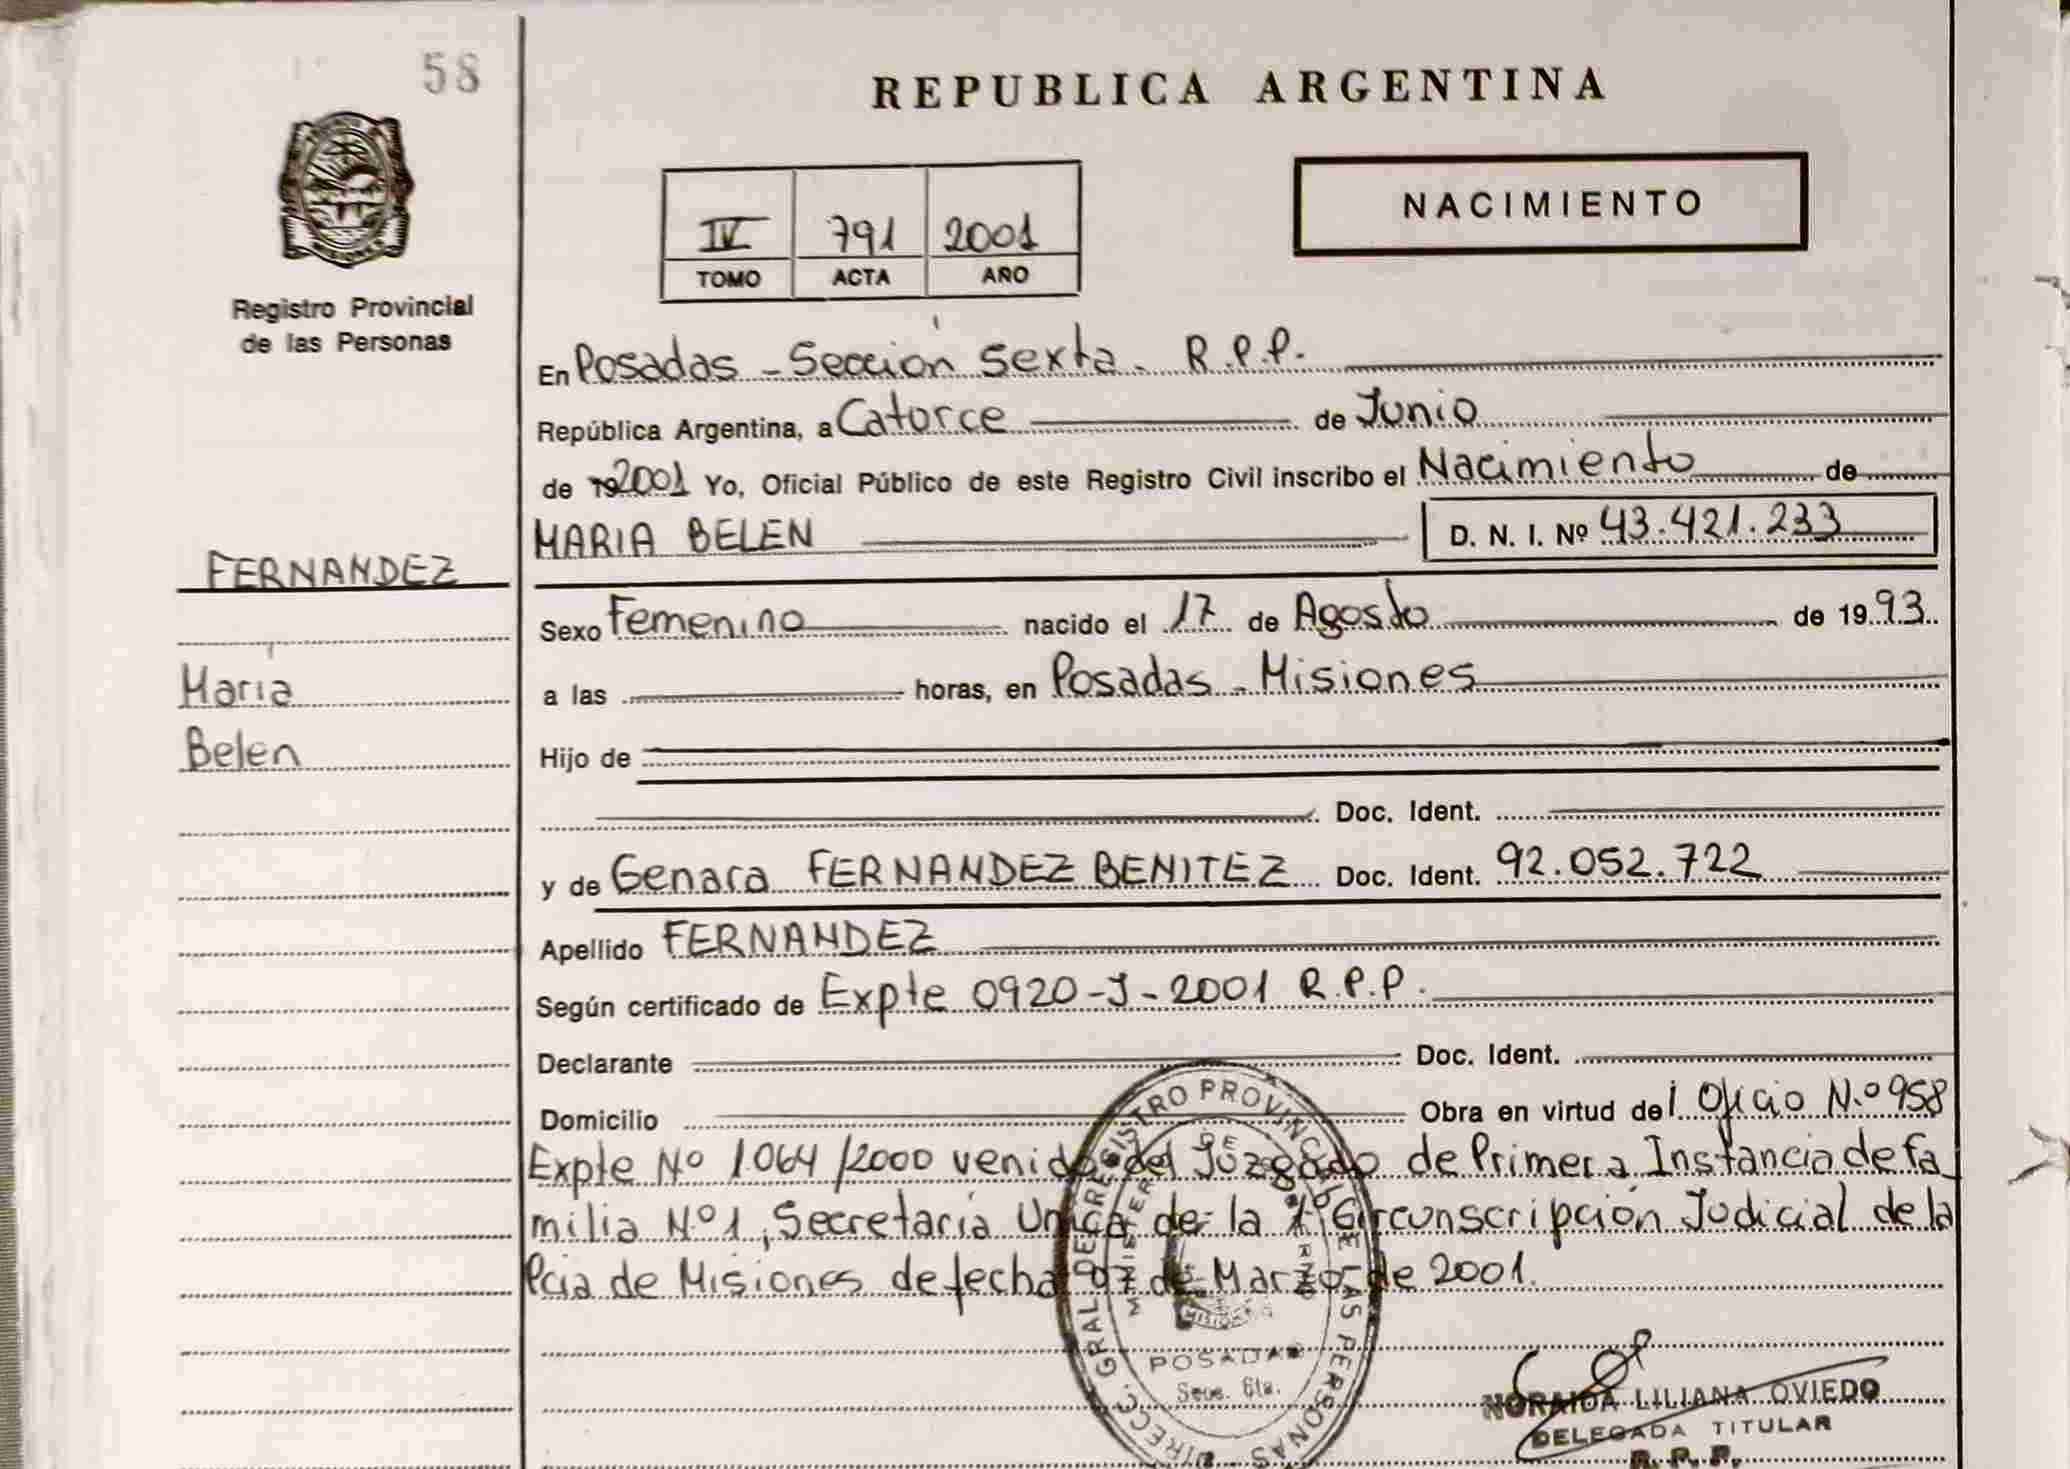 58
REPUBLICA ARGENTINA
NACIMIENTO
IV 791 2001
TOMO ACTA AÑO
Registro Provincial
de las Personas
En Posadas - Sección Sexta. R.P.P.
República Argentina, a Catorce de Junio
de 192001 Yo, Oficial Público de este Registro Civil inscribo el Nacimiento de
MARIA BELEN D. N. I. Nº 43.421.233
FERNANDEZ
María
Belen
Sexo Femenino nacido el 17 de Agosto de 1993
a las horas, en Posadas - Misiones
Hijo de
Doc. Ident.
y de Genara FERNANDEZ BENITEZ Doc. Ident. 92.052.722
Apellido FERNANDEZ
Según certificado de Expte 0920-J-2001 R.P.P.
Declarante Doc. Ident.
Domicilio Obra en virtud del Oficio N.º 958
Expte Nº 1.064/2000 venido del Juzgado de Primera Instancia de Fa
milia Nº 1, Secretaría Unica de la 1º Circunscripción Judicial de la
Pcia de Misiones de fecha 07 de Marzo de 2001.
DIRECC. GRAL DE REGISTRO PROVINCIAL DE LAS PERSONAS
MISIONES
POSADAS
Secc. 6ta.
NORAIDA LILIANA OVIEDO
DELEGADA TITULAR
R. P. P.